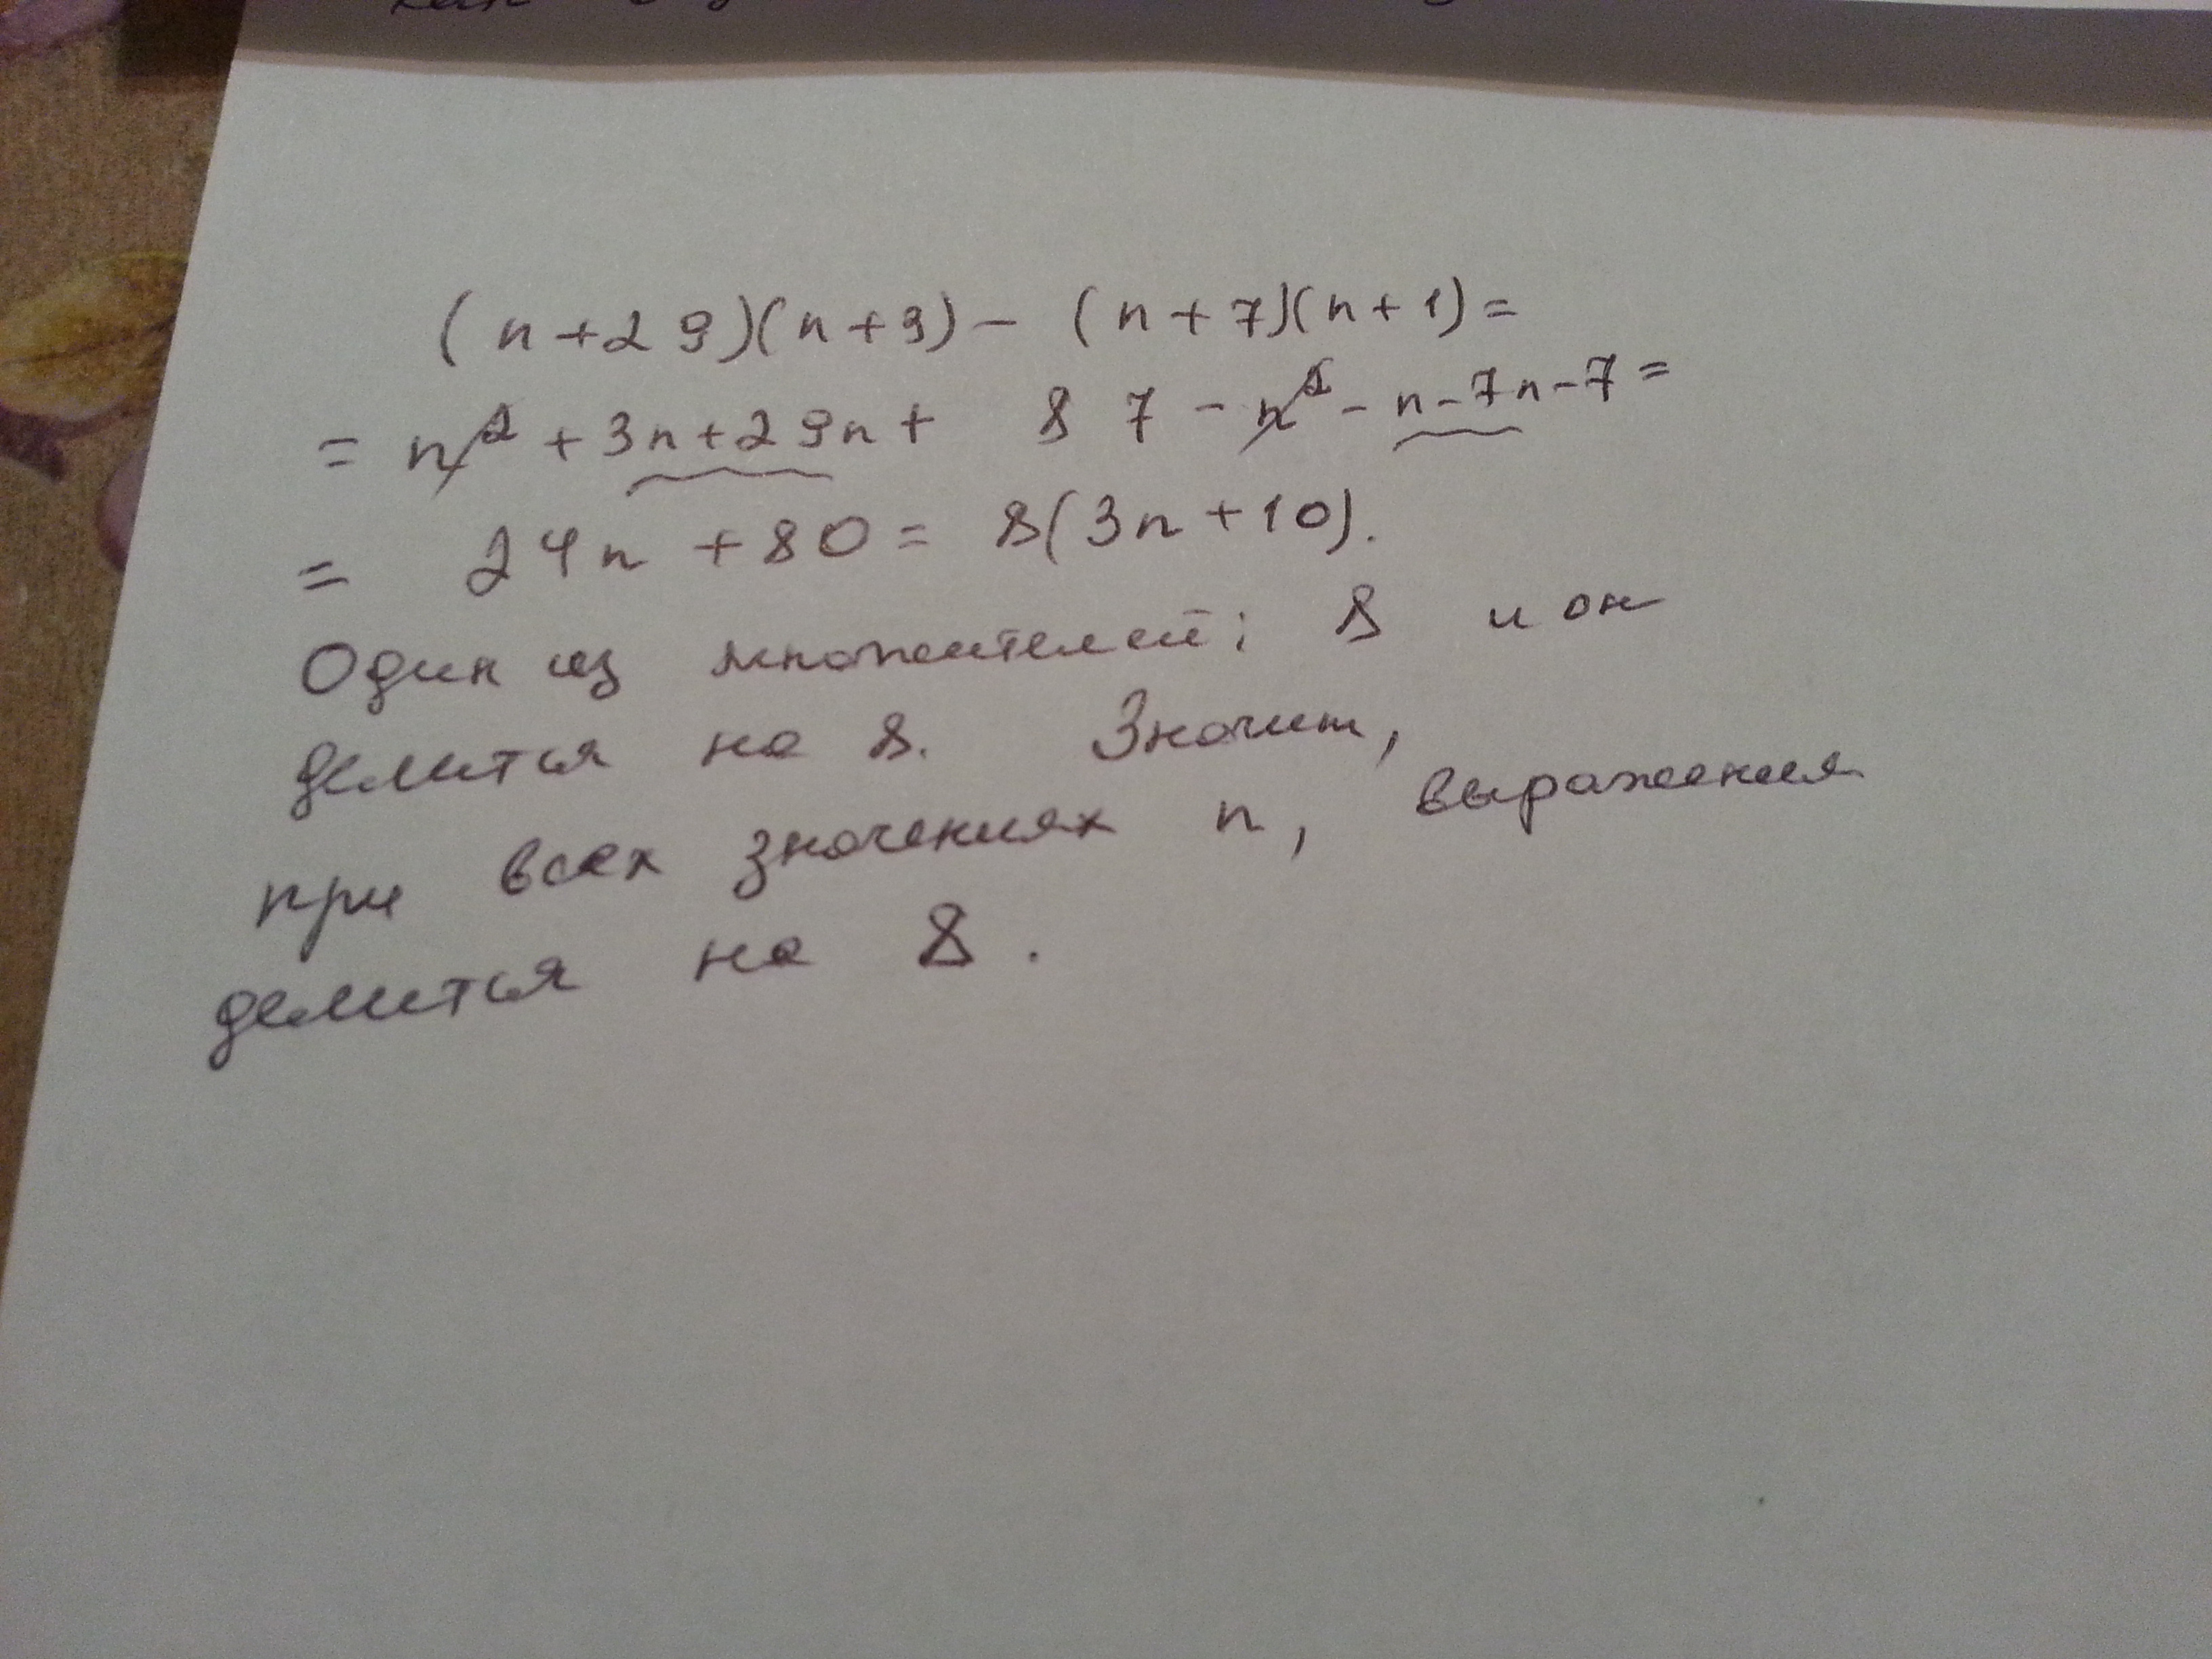 (n+29)(n+3)- (n+7)(n+1)=
= n² +3n+29n+ 87 -n² -n-7n-7=
= 24n +80= 8(3n+10).
Один из множителей: 8 и он
делится на 8. Значит,
при всех значениях n, выражения
делится на 8.